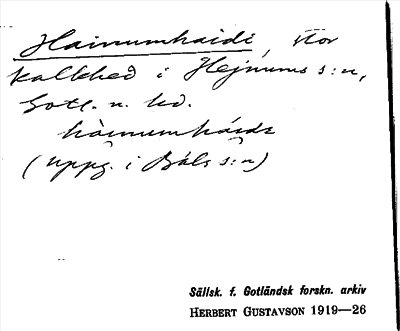 Hainumhaidi, stor
kalkhed i Hejnums s:n,
Gotl. n. hd.
hàinumhái̯dɛ
(uppg. i Bäls s:n)
Sällsk. f. Gotländsk forskn. arkiv
HERBERT GUSTAVSON 1919—26